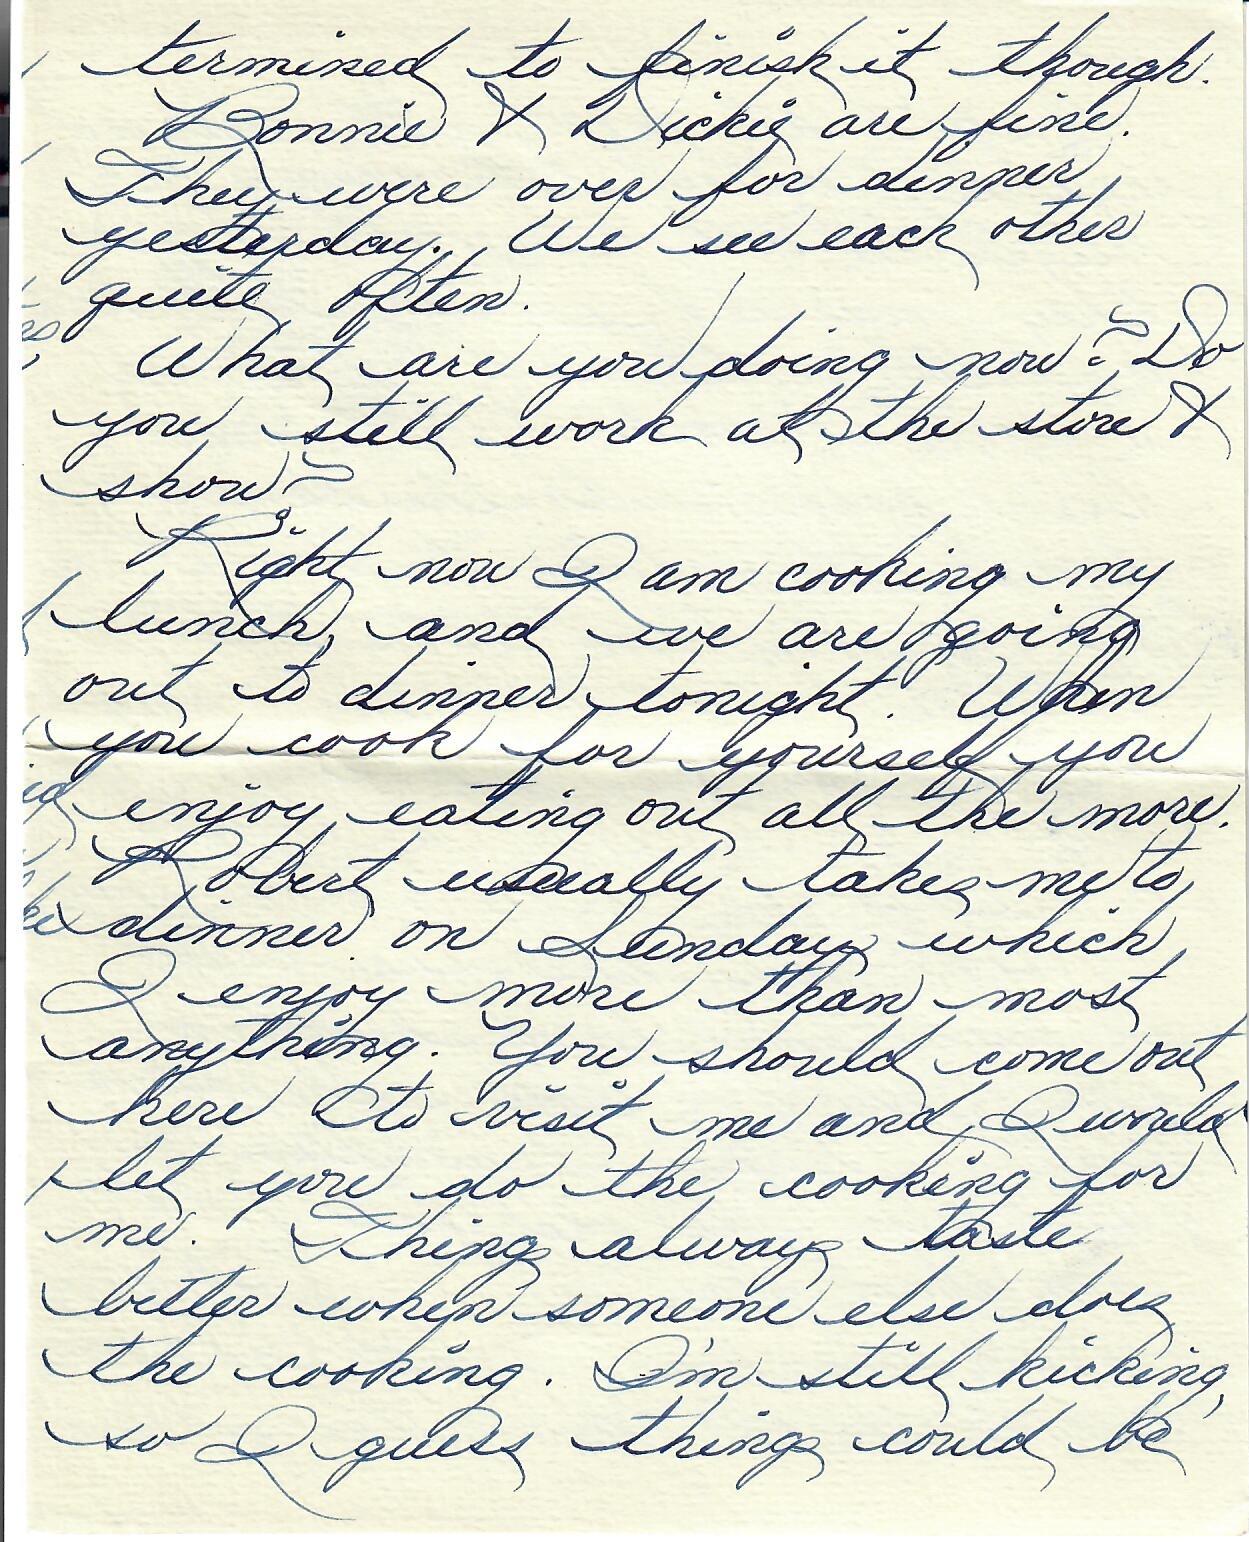 termined to finish it though.
Bonnie & Dickie are fine.
They were over for dinner
yesterday. We see each other
quite often.
What are you doing now? Do
you still work at the store &
show?
Right now I am cooking my
lunch, and we are going
out to dinner tonight. When
you cook for yourself you
enjoy eating out all the more.
Robert usually takes me to
dinner on Sundays which
I enjoy more than most
anything. You should come out
here to visit me and I would
let you do the cooking for
me. Things always taste
better when someone else does
the cooking. I'm still kicking,
so I guess things could be